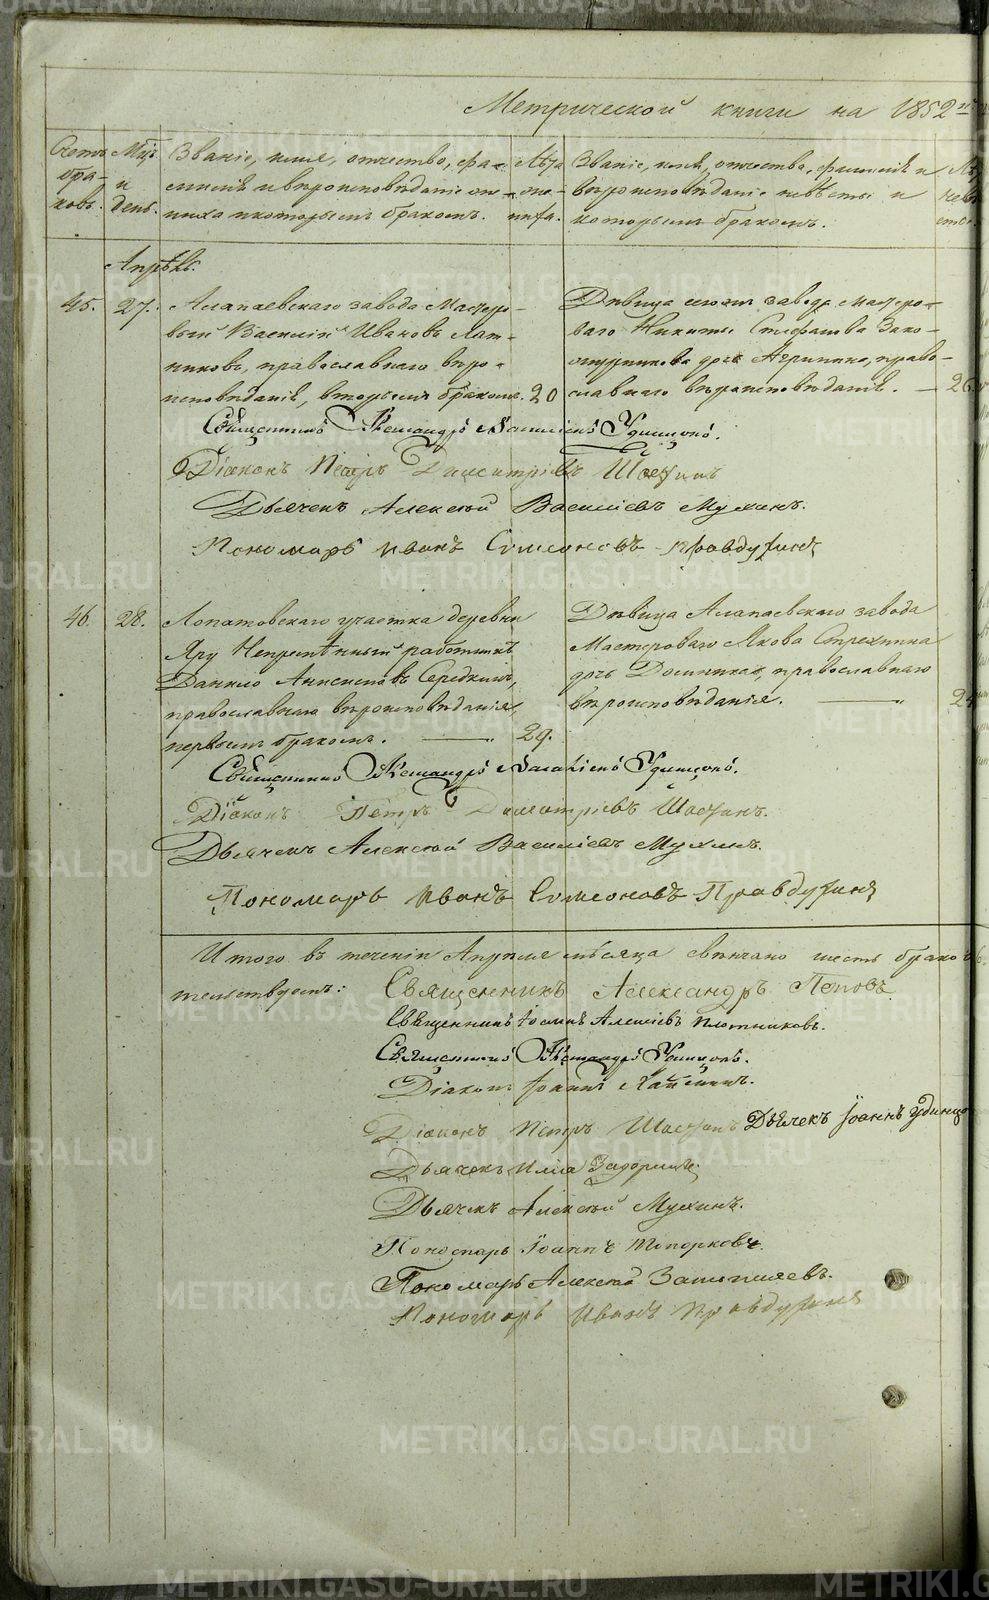 Метрической книги на 1852й
Счетъ бра-ковъ.
Мцъ и день.
Званіе, имя, отчество, фа-
миліѣ и вѣроисповѣданіе же-
ниха и которымъ бракомъ.
Лѣта же-ниха.
Званіе, имя, отчество, фамиліѣ и
вѣроисповѣданіе невѣсты и
которымъ бракомъ.
Апрѣль.
45. 27. Алапаевскаго завода Мастеро-
вый Василій Ивановъ
православнаго вѣро-
исповѣданія, вторымъ бракомъ. 20
Дѣвица завода мастеро-
ваго Никиты Стефанова
дочь Агрипина, право-
славнаго вѣроисповѣданія. — 26.
Священникъ Александръ Удинцовъ.
Діаконъ Петръ Димитріевъ
Дьячекъ Алексѣй Василіевъ Мухинъ.
Пономарь Иванъ Симеоновъ Правдухинъ
46. 28. Лопатовскаго участка деревни
Яру Непремѣнный работникъ
Данило Анисимовъ Середкинъ,
православнаго вѣроисповѣданія,
первымъ бракомъ. — 29.
Дѣвица Алапаевскаго завода
Мастероваго Якова Стрехнина
дочь Домника, православнаго
вѣроисповѣданія. — 24
Священникъ Александръ Удинцовъ.
Діаконъ Петръ Димитріевъ
Дьячекъ Алексѣй Василіевъ Мухинъ.
Пономарь Иванъ Симеоновъ Правдухинъ
Итого въ теченіи Апрѣля мѣсяца свѣнчано шесть браковъ
тельствуемъ:
Священникъ Александръ Поповъ
Священникъ Іоаннъ Алексіевъ Плотниковъ.
Священникъ Александръ Удинцовъ.
Діаконъ Іоаннъ
Діаконъ Петръ Дьячекъ Іоаннъ Удинцо
Дьячекъ Илія Задоринъ
Дьячекъ Алексѣй Мухинъ.
Пономарь Іоаннъ Топорковъ.
Пономарь Алексѣй
Пономарь Иванъ Правдухинъ
METRIKI.GASO-URAL.RU